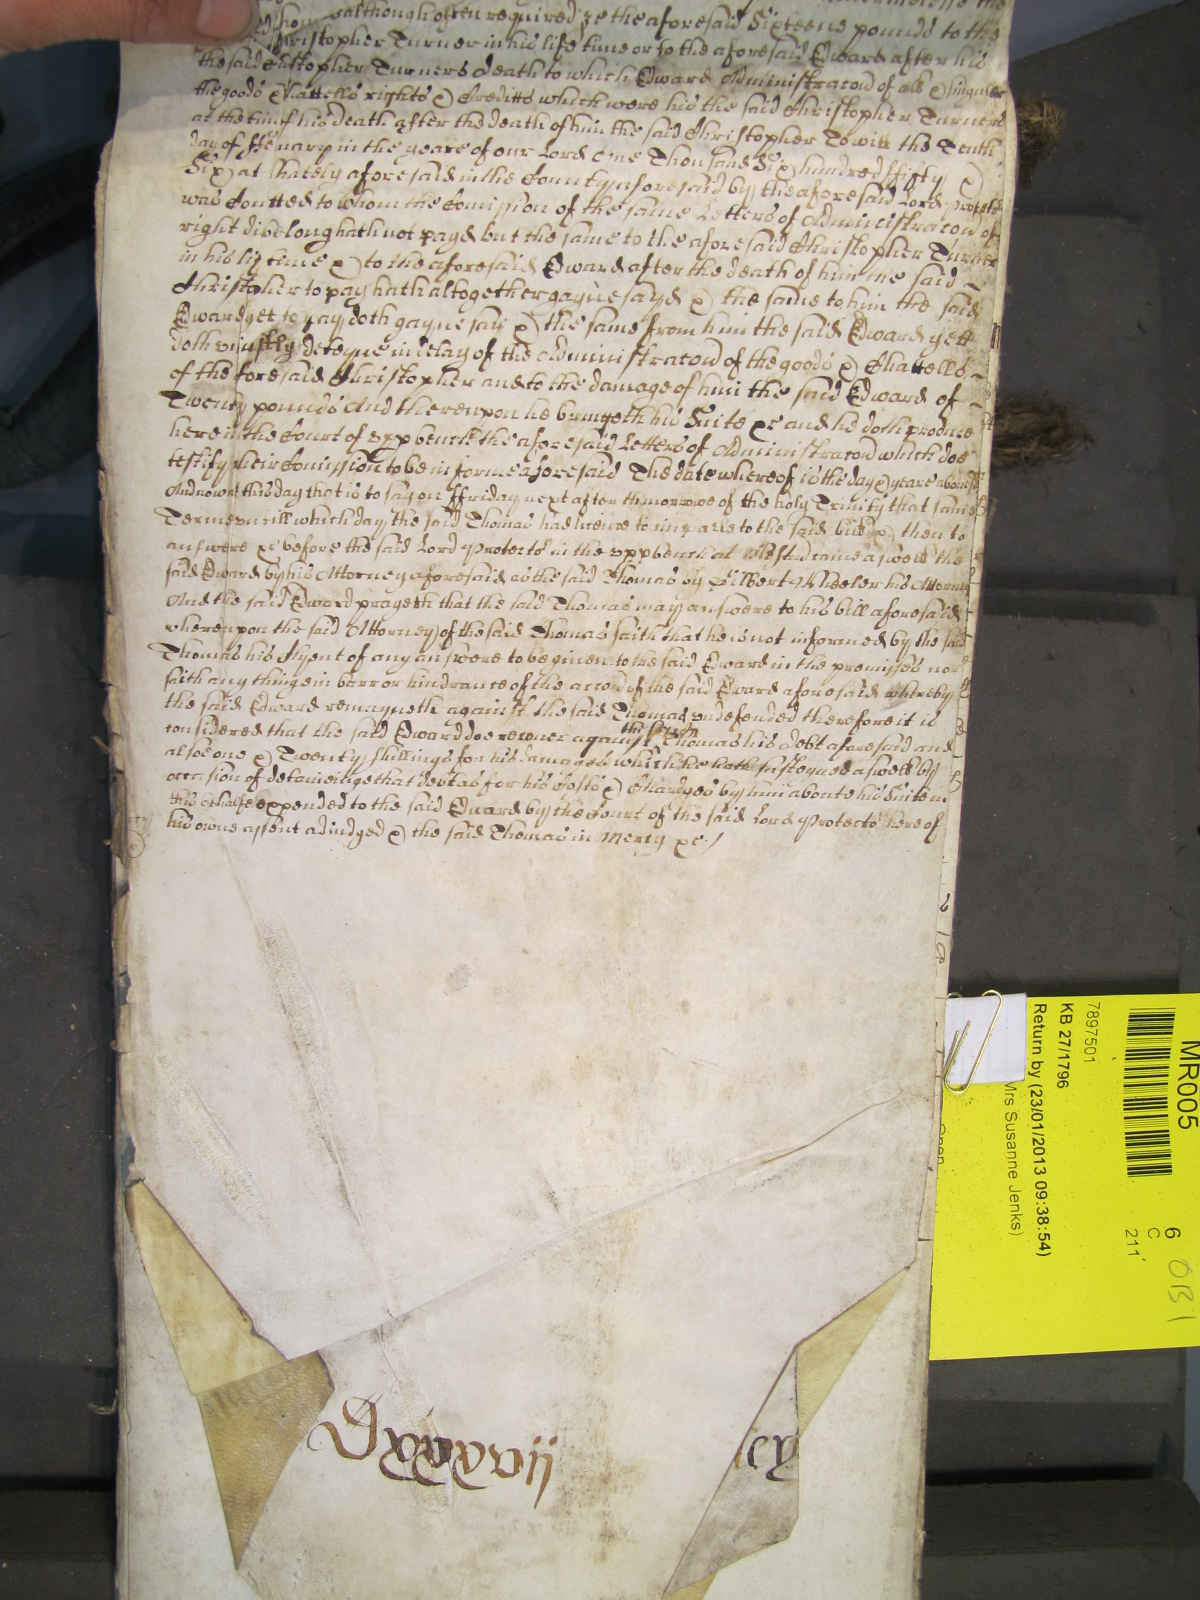 although often required &c the aforesaid Sixteene pounds to the
Christopher Turner in his life time or to the aforesaid Edward after his
the said Christopher Turners death to which Edward Administracon of all & singuler
the goods Chattells rights & Creditts which were his the said Christopher Turners
at the time of his death after the death of him the said Christopher To witt the Tenth
day of in the yeare of our Lord One Thousand Six hundred fifty &
Six at aforesaid in the County aforesaid by the aforesaid Lord Protector
was Comitted to whom the Comission of the same Letters of Administracon of
right did belong hath not payd but the same to the aforesaid Christopher Turner
in his life time & to the aforesaid Edward after the death of him the said
Christopher to pay hath altogether gayne sayd & the same to him the said
Edward yet to pay doth gayne say & the same from him the said Edward yett
doth uniustly deteyne in delay of the Administracon of the goods & Chattells
of the foresaid Christopher and to the damage of him the said Edward of
Twenty pounds And thereupon he bringeth his Suite &c and he doth produce
here in the Court of upp bench the aforesaid Letters of Administracon which doe
testify their Comission to be in forme aforesaid The date whereof is the day & yeare abovesaid
And now at this day that is to say on ffriday next after the morrowe of the holy Trinity that same
Terme untill which day the said Thomas had licence to imparle to the said bill & then to
answere &c before the said Lord Protector in the upp bench at Westm came aswell the
said Edward by his Attorney aforesaid as the said Thomas by Gilbert Wheeler his Attorney
And the said Edward prayeth that the said Thomas may answere to his bill aforesaid
whereupon the said Attorney of the said Thomas saith that he is not informed by the said
Thomas his Clyent of any answere to be given to the said Edward in the premisses nor
saith any thinge in barr or hindrance of the accon of the said Edward aforesaid whereby
the said Edward remayneth against the said Thomas undefended therefore it is
considered that the said Edward doe recover against the said Thomas his debt aforesaid and
alsoe one & Twenty shillings for his damages which he hath susteyned aswell by
occasion of deteininge that debt as for his Costs & Chardges by him aboute his Suite in
this behalfe expended to the said Edward by the Court of the said Lord Protector here of
his owne assent adiudged & the said Thomas in Mercy &c
Dxxxxvii
MR005
7897501
KB 27/1796
Return by (23/01/2013 09:38:54)
Mrs Susanne Jenks)
Open
6
C
211
OB1